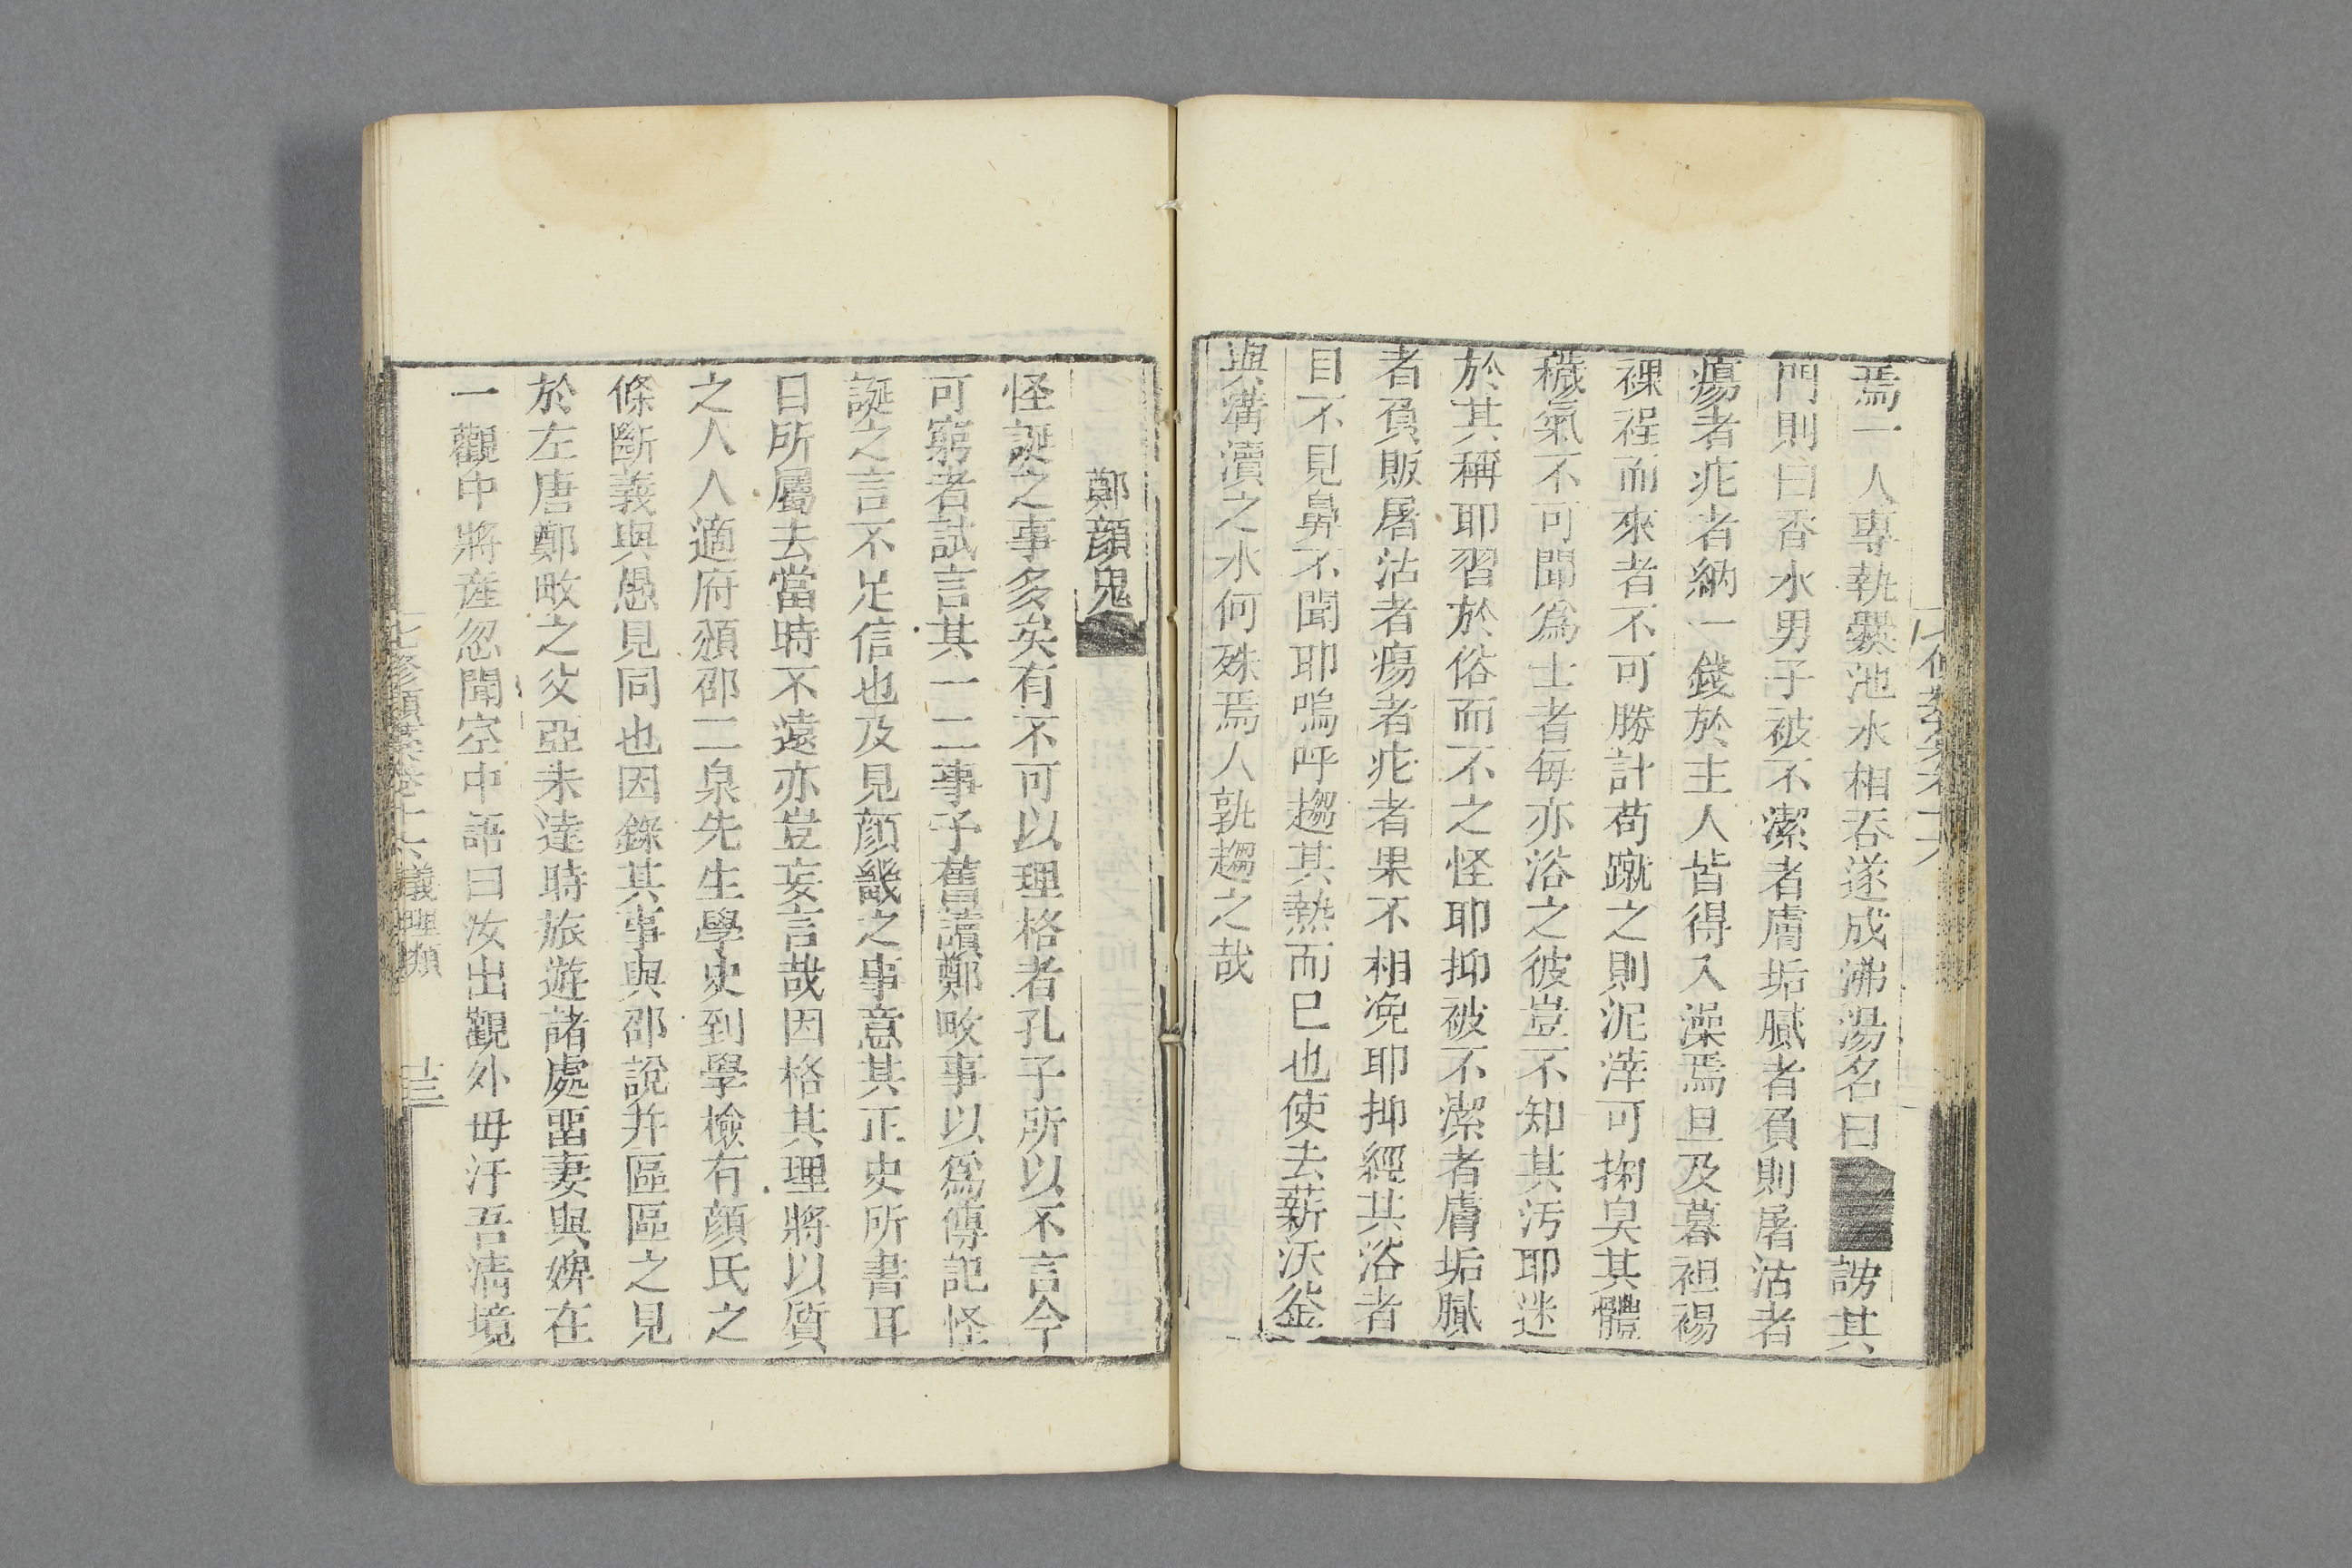 焉一人專執爨池水相吞遂成沸湯名曰 謗其
門則曰香水男子被不潔者膚垢膩者負則屠沽者
瘍者疕者納一錢於主人皆得入澡焉旦及暮袒裼
裸裎而來者不可勝計苟蹴之則泥滓可掬臭其體
穢氣不可聞爲士者每亦浴之彼豈不知其汚耶迷
於其稱耶習於俗而不之怪耶抑被不潔者膚垢膩
者負販屠沽者瘍者疕者果不相凂耶抑經其浴者
目不見鼻不聞耶嗚呼趨其熱而已也使去薪沃釡
與溝瀆之水何殊焉人孰趨之哉
鄭顔鬼
怪誕之事多矣有不可以理格者孔子所以不言今
可窮者試言其一二事予舊讀鄭畋事以爲傳記怪
誕之言不足信也及見顔畿之事意其正史所書耳
目所屬去當時不遠亦豈妄言哉因格其理將以質
之人人適府頒邵二泉先生學史到學檢有顔氏之
條斷義與愚見同也因錄其事與邵說并區區之見
於左唐鄭畋之父亞未達時旅遊諸處畱妻與婢在
一觀中將産忽聞空中語曰汝出觀外毋汙吾清境
七修類藁卷十六義理類 十三